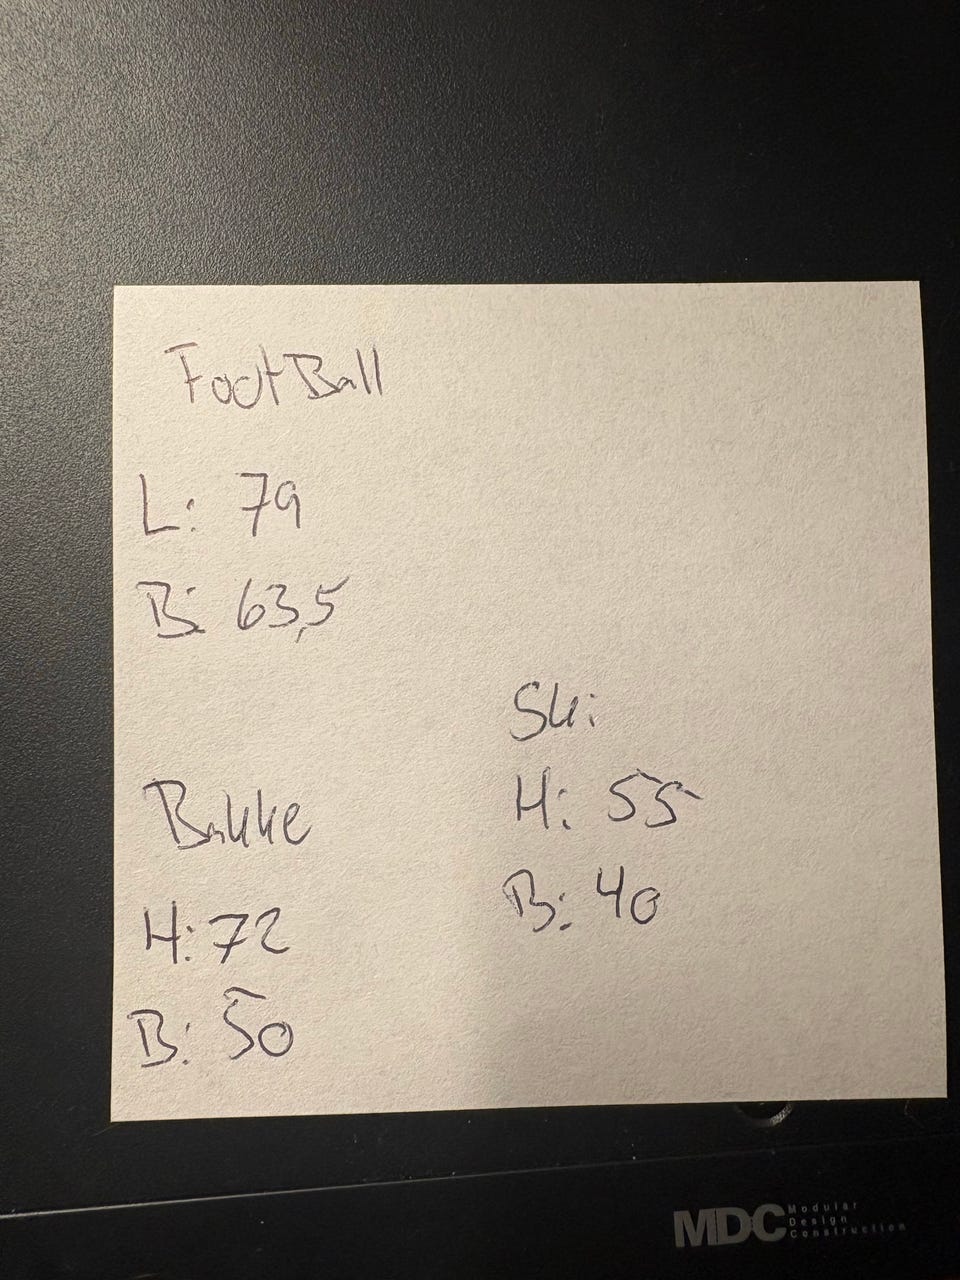 FootBall
L: 79
B: 63,5
Bakke
H: 72
B: 50
Ski
H: 55
B: 40
MDC Modular
Design
Construction